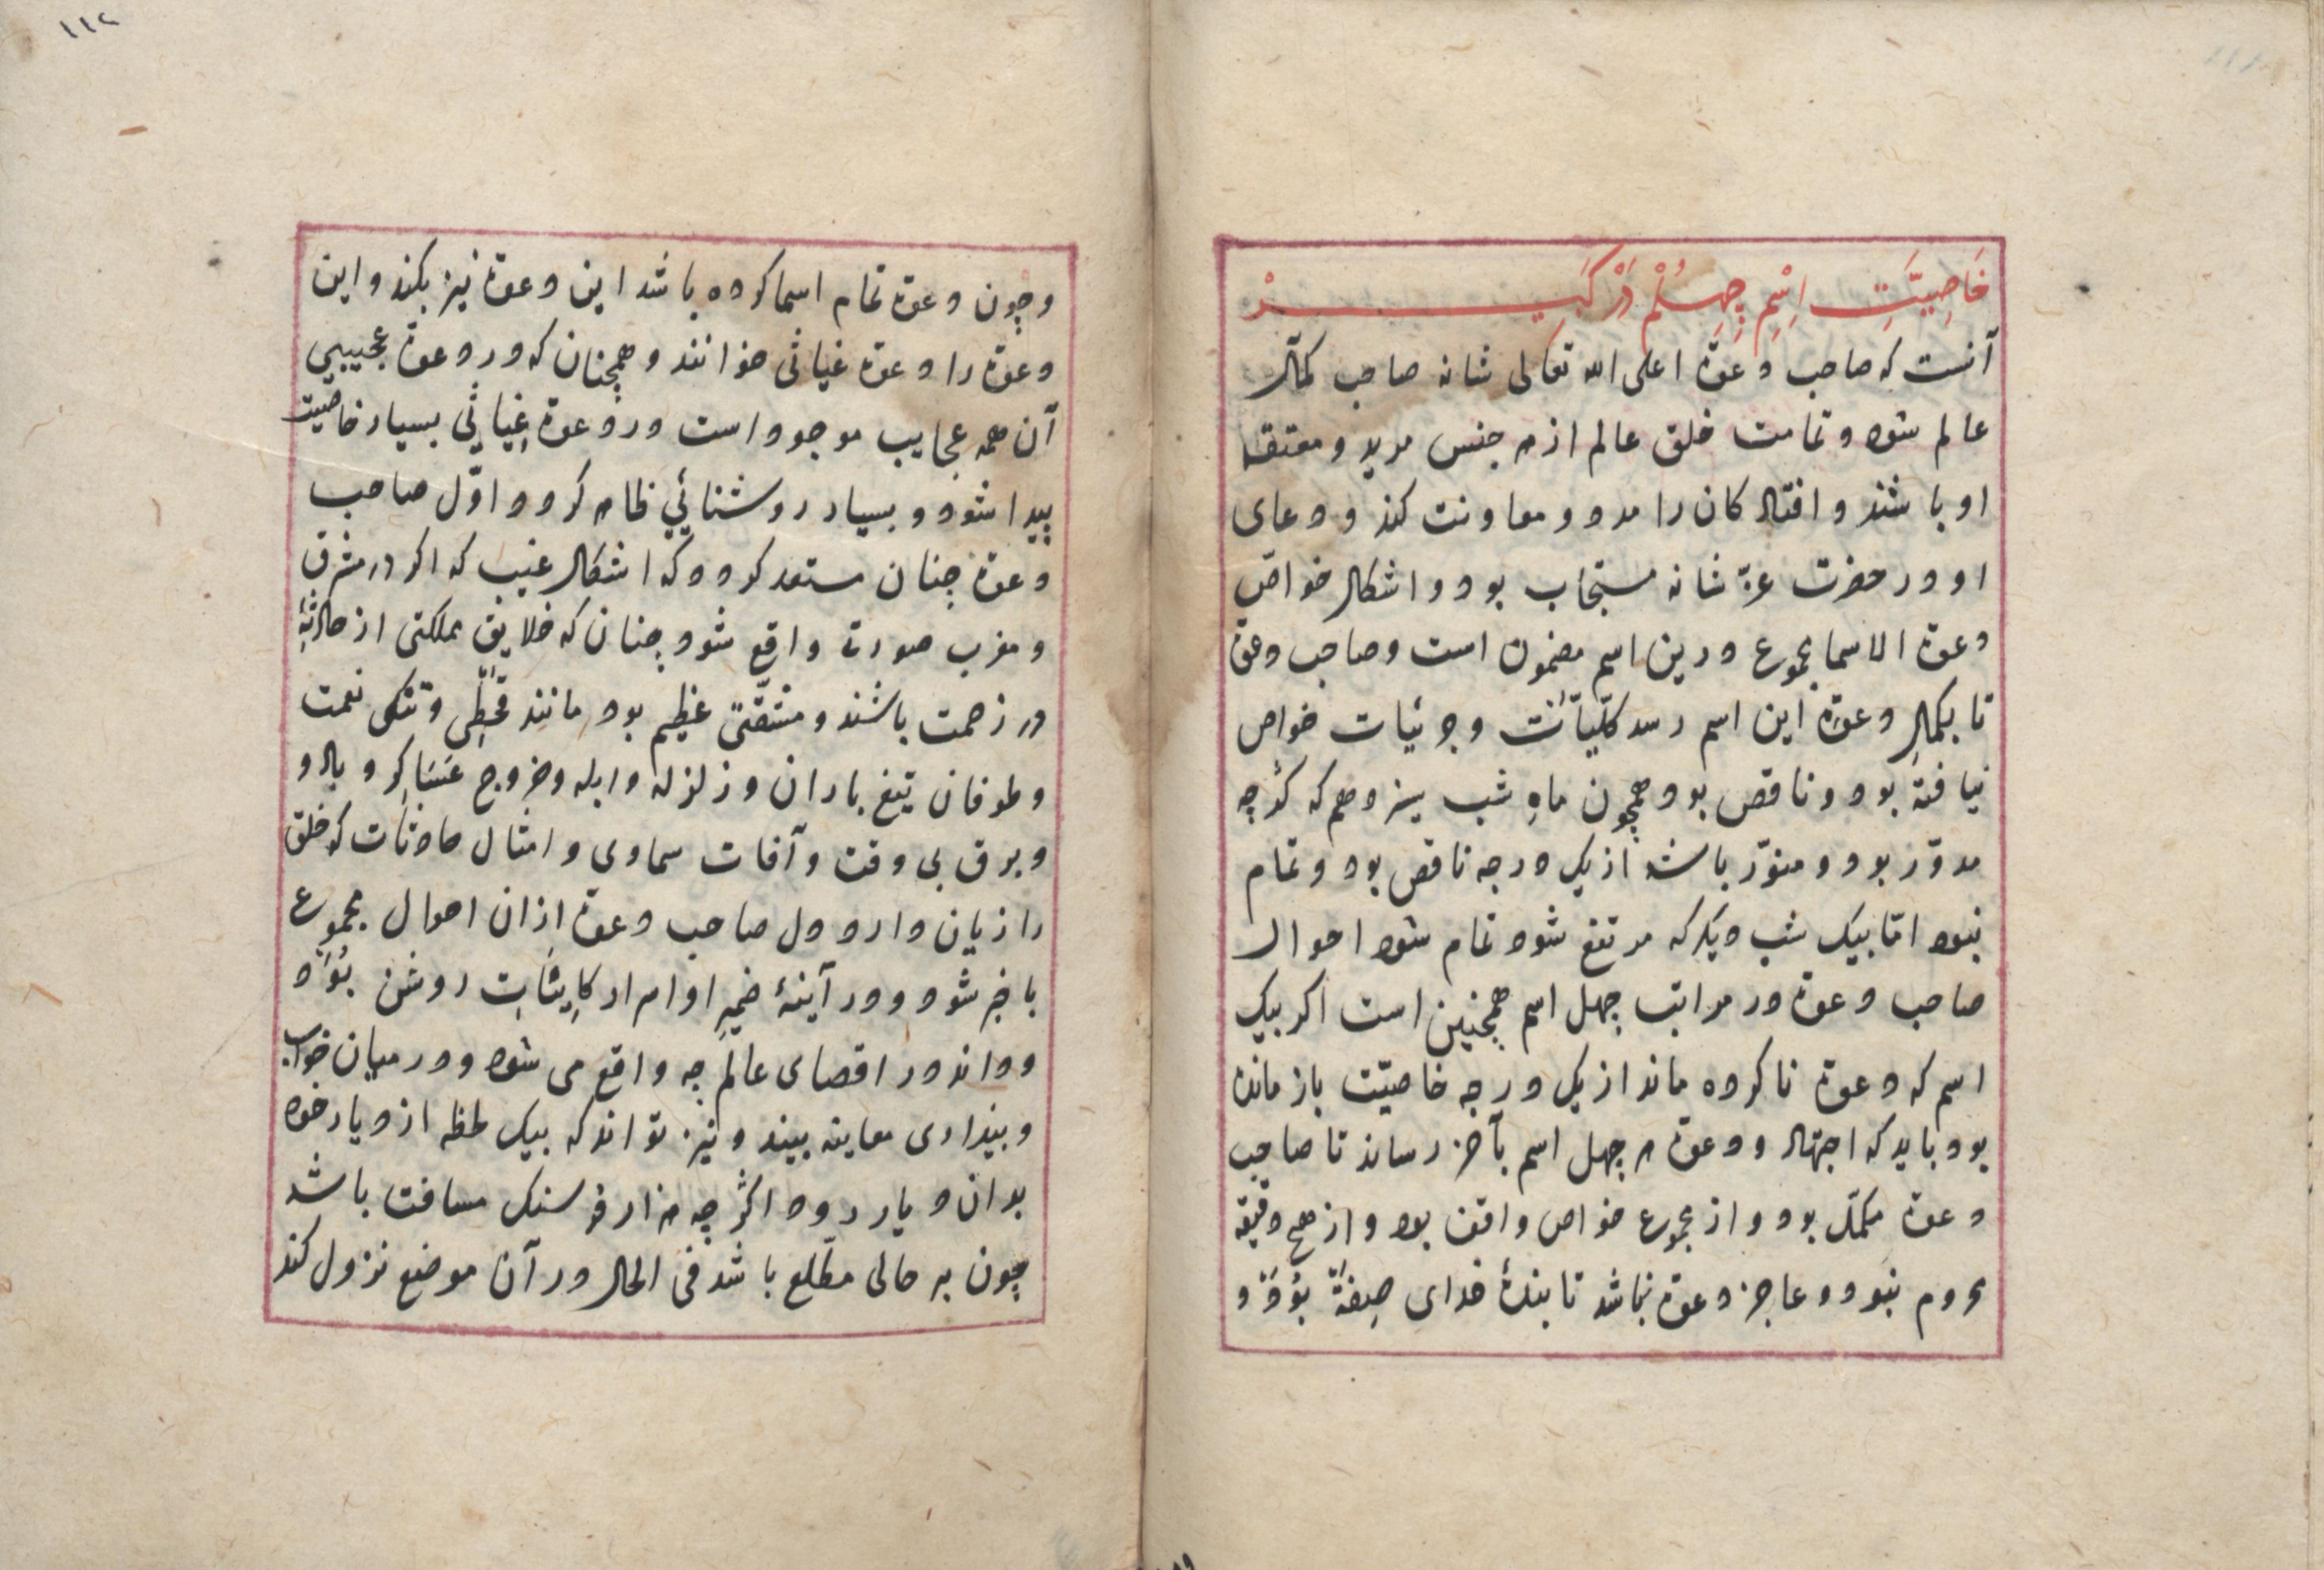 خَاصِيَّتِ اِسْمِ چِهِلُمْ دَرْ كَبِيرْ
آنست که صاحب دعوة اعلی الله تعالی شانه صاحب کمال
عالم شود و تمامت خلق عالم از هر جنس مرید و معتقد
او باشند و افتادکان را مدد و معاونت کند و دعای
او در حضرت عزّ شانه مستجاب بود و اشکال خواصّ
دعوة الاسما مجموع درین اسم مضمون است و صاحب دعوة
تا بکمالِ دعوة این اسم رسد کلّیّات و جزئیات خواص
نیافتهٔ بود و ناقص بود همچون ماهِ شب سیزدهم که کرچه
مدوّر بود و منوّر باشد از یک درجه ناقص بود و تمام
نبود امّا بیک شب دیکر که مرتفع شود تمام شود احوال
صاحب دعوة در مراتب چهل اسم همچنین است اکر بیک
اسم که دعوة ناکرده ماند از یک درجه خاصیّت باز مانده
بود باید که اجتهاد و دعوة هر چهل اسم بآخر رساند تا صاحب
دعوة مکمّل بود و از مجموع خواص واقف بود و از هیچ دقیقه
محروم نبود و عاجز دعوة نباشد تا بندهٔ خدای صفة بود و
وچون دعوة تمام اسما کرده باشد این دعوة نیز بکند و این
دعوة را دعوة غیاثی خوانند و همچنان که در دعوة عجیبیی
آن همه عجایب موجود است در دعوة غیاثی بسیار خاصیت
پیدا شود و بسیار روشنائی ظاهر کردد اوّل صاحب
دعوة چنان مستعد کردد که اشکال غیب که اکر در مشرق
و مغرب صورت واقع شود چنان که خلایق مملکتی از حادثهٔ
در زحمت باشند و مشقّتی عظیم بود مانند قحطی و تنکی نعمت
و طوفان تیغ باران و زلزله و ابله و خروج عَسَاکِر و باد و
و برق بی وقت و آفات سماوی و امثال حادثات که خلق
را زیان دارد دل صاحب دعوة ازان احوال مجموع
با خبر شود و در آینهٔ ضمیرِ او اسرار کاینات روشن بود
و داند در اقصای عالم چه واقع می شود و در میان خواب
و بیداری معاینه بیند و نیز تواند که بیک لحظه از دیار خود
بدان دیار رود اکرچه هزار فرسنک مسافت باشد
چون بر حالی مطّلع باشد فی الحال در آن موضع نزول کند
١١٢